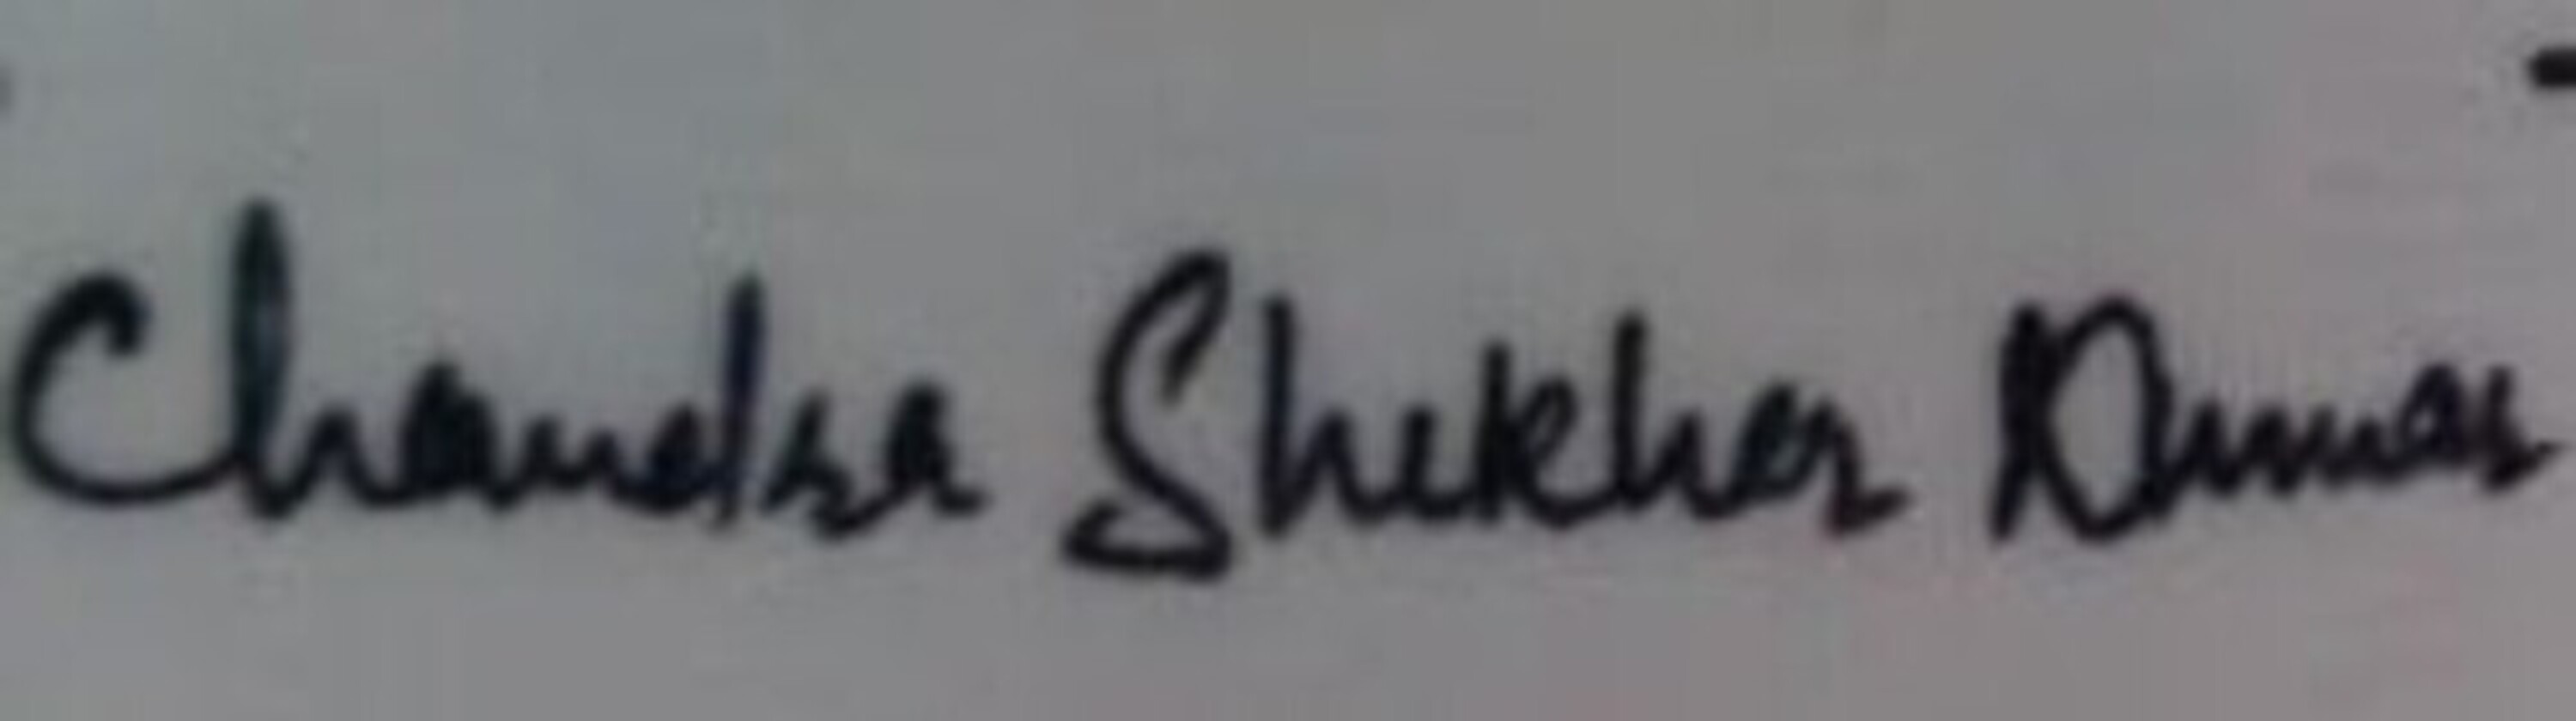 Chandra Shekhar Kumar